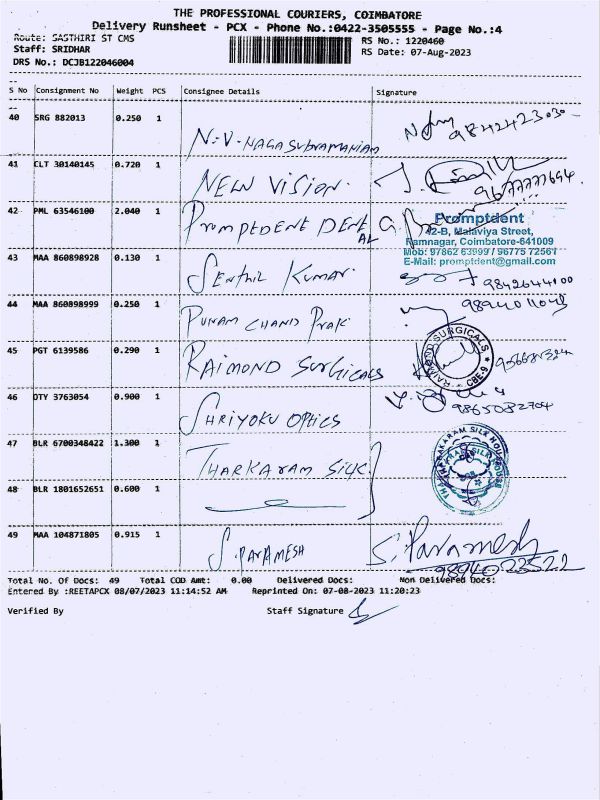 THE PROFESSIONAL COURIERS, COIMBATORE
Delivery Runsheet - PCX - Phone No.:0422-3505555 - Page No.:4
Route: SASTHIRI ST CMS
RS No.: 1220460
Staff: SRIDHAR
RS Date: 07-Aug-2023
DRS No.: DCJB122046004
S No Consignment No Weight PCS Consignee Details Signature
40 SRG 882013 0.250 1
N.V. NAGASUBRAMANIAM 9842423030
41 CLT 30140145 0.720 1
NEW VISION.
42 PML 63546100 2.040 1
PROMPTDENT DENTAL
Promptdent
42-B, Malaviya Street,
Ramnagar, Coimbatore-641009
Mob: 97862 63999 / 96775 72567
E-Mail: promptdent@gmail.com
43 MAA 860898928 0.130 1
SENTHIL KUMAR. 9842644100
44 MAA 860898999 0.250 1
PUNAM CHAND PRAK
45 PGT 6139586 0.290 1
RAIMOND SURGICALS
RAIMOND SURGICALS CBE-9
46 DTY 3763054 0.900 1
SHRIYOKU OPTICS 9865082704
47 BLR 6700348422 1.300 1
THARKARAM SILK
48 BLR 1801652651 0.600 1
49 MAA 104871805 0.915 1
S. PARAMESH S. Paramesh
9894023522
Total No. Of Docs: 49 Total COD Amt: 0.00 Delivered Docs: Non Delivered Docs:
Entered By :REETAPCX 08/07/2023 11:14:52 AM Reprinted On: 07-08-2023 11:20:23
Verified By Staff Signature